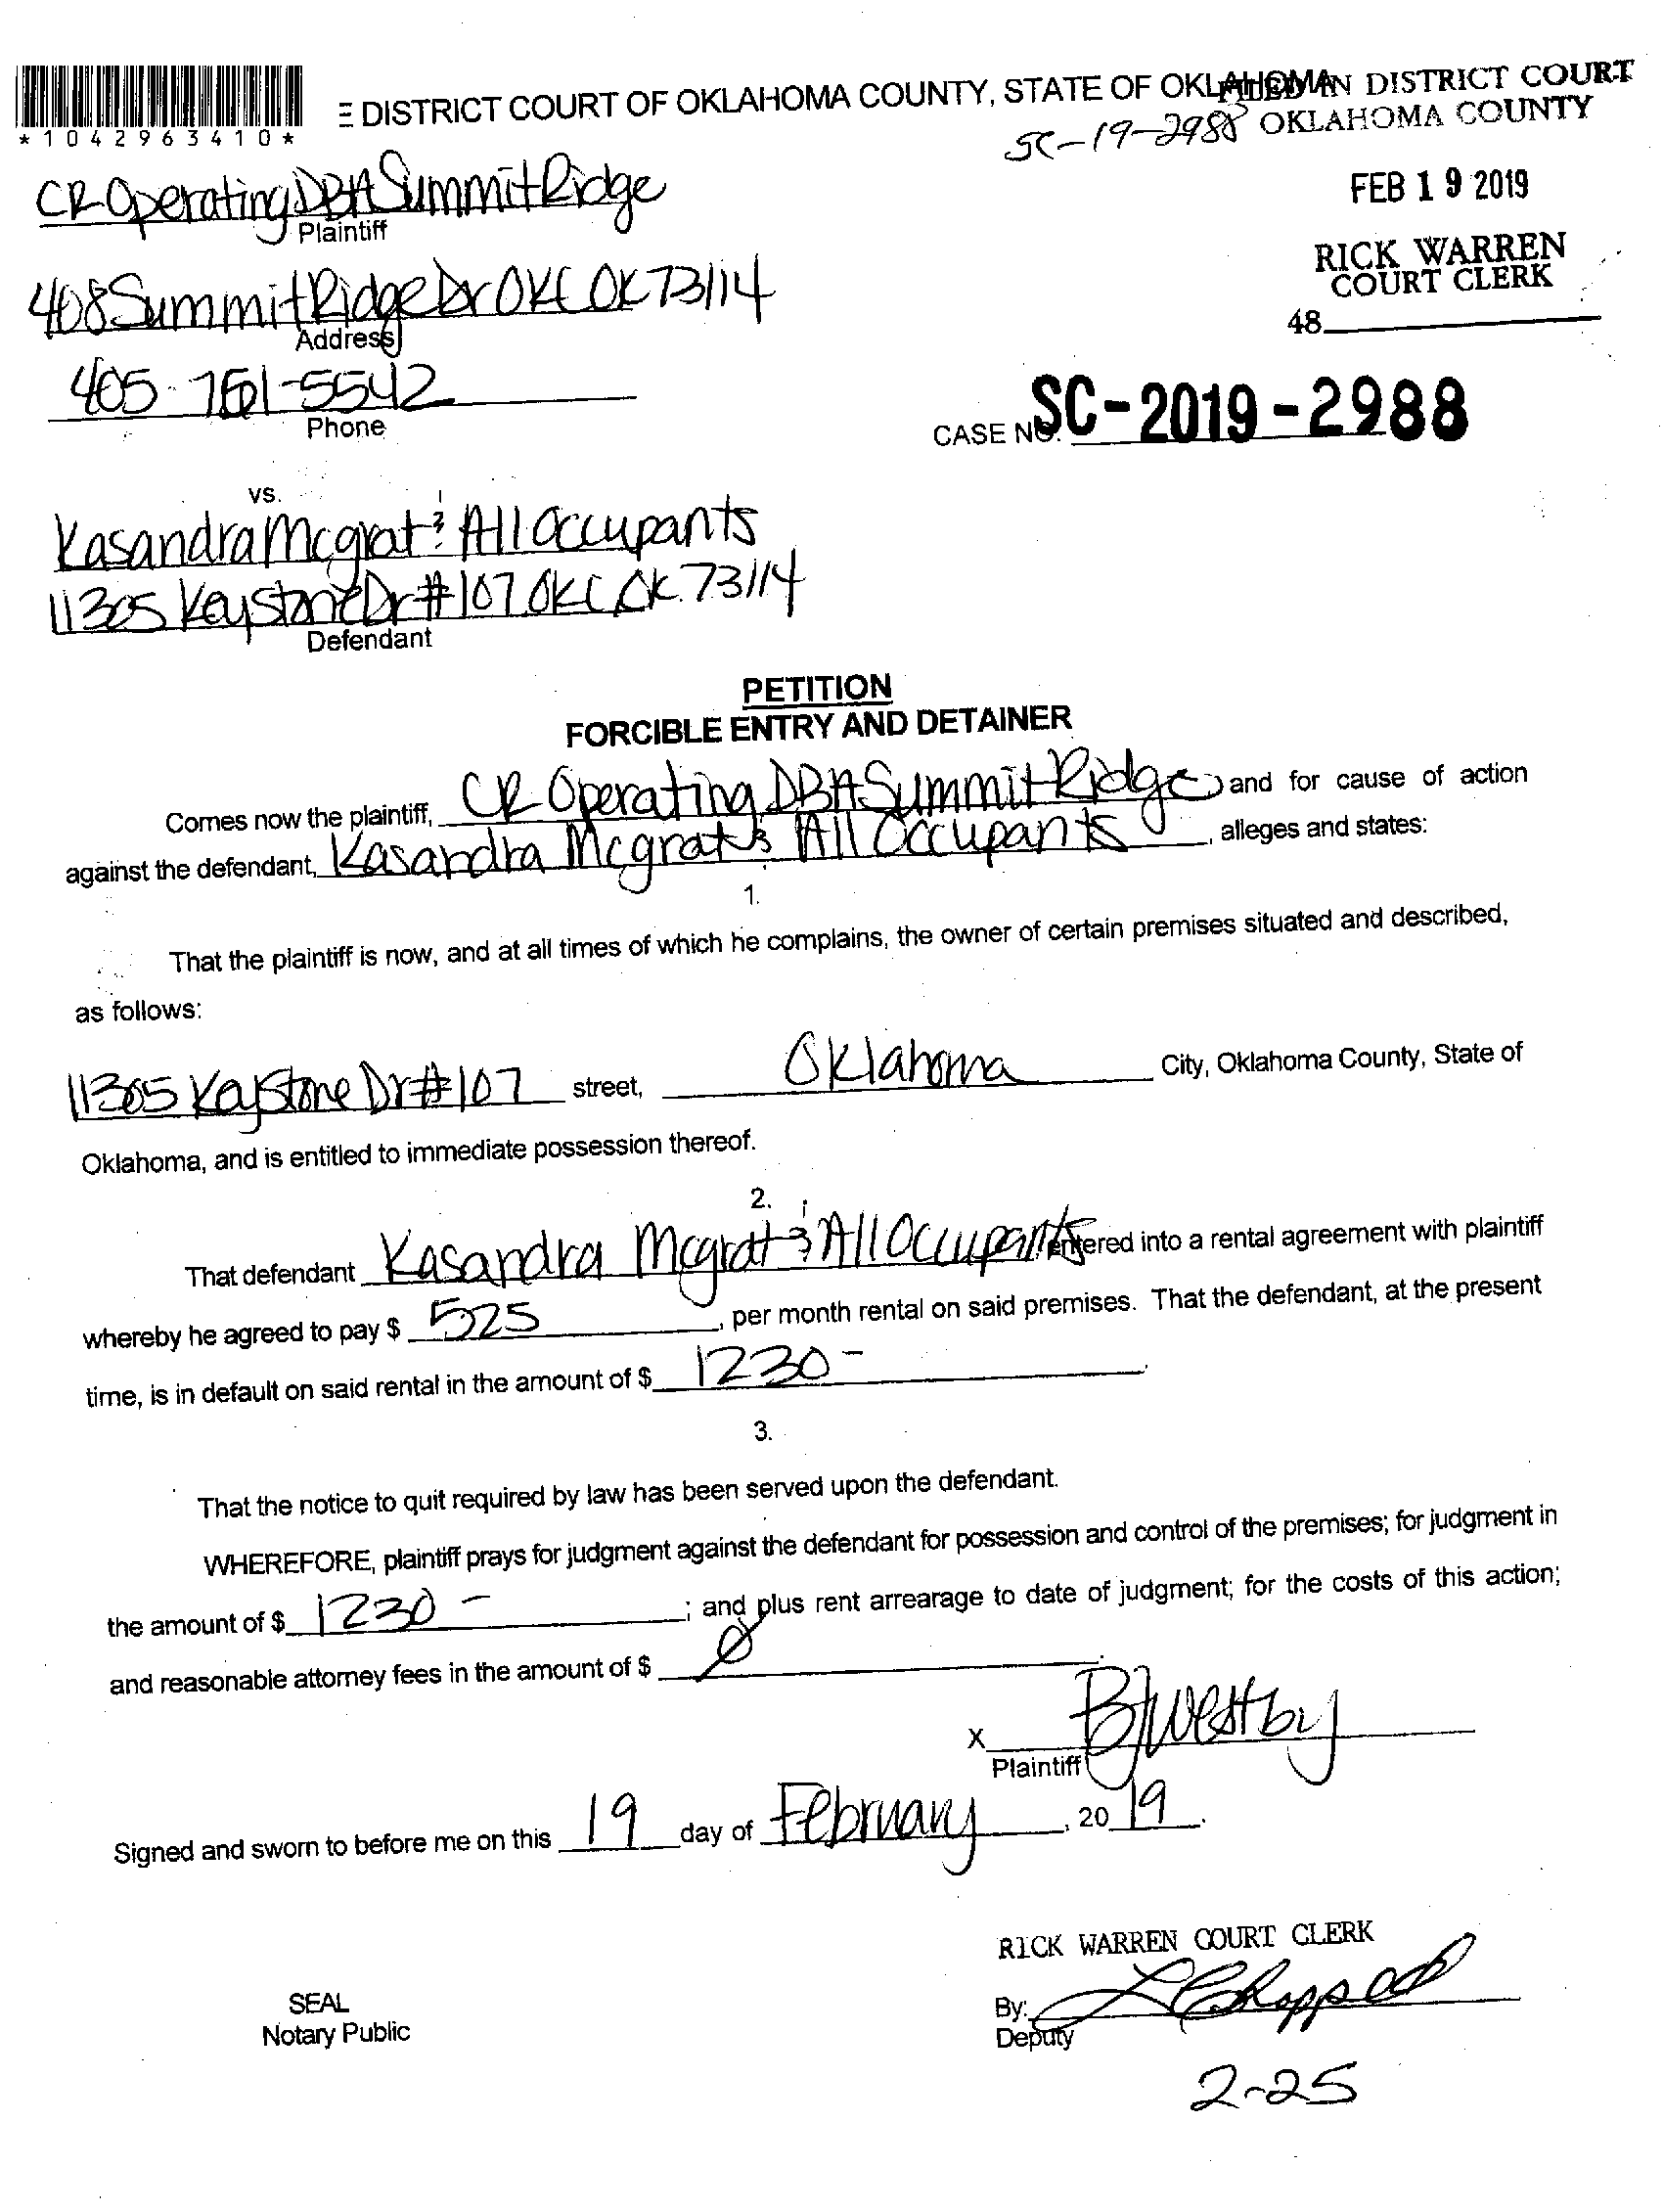 *1042963410*
E DISTRICT COURT OF OKLAHOMA COUNTY, STATE OF OKLAHOMA
FILED IN DISTRICT COURT
OKLAHOMA COUNTY
SC-19-2988
FEB 19 2019
RICK WARREN
COURT CLERK
48
CR Operating DBA Summit Ridge
Plaintiff
408 Summit Ridge Dr OKC OK 73114
Address
405-751-5542
Phone
CASE NO. SC-2019-2988
vs.
Kasandra Mcgrat & All Occupants
11305 Keystone Dr #107 OKC OK 73114
Defendant
PETITION
FORCIBLE ENTRY AND DETAINER
Comes now the plaintiff, CR Operating DBA Summit Ridge and for cause of action
against the defendant, Kasandra Mcgrat & All Occupants, alleges and states:
1.
That the plaintiff is now, and at all times of which he complains, the owner of certain premises situated and described,
as follows:
11305 Kaystone Dr #107 street, Oklahoma City, Oklahoma County, State of
Oklahoma, and is entitled to immediate possession thereof.
2.
That defendant Kasandra Mcgrat & All Occupants entered into a rental agreement with plaintiff
whereby he agreed to pay $ 525, per month rental on said premises. That the defendant, at the present
time, is in default on said rental in the amount of $ 1230-.
3.
That the notice to quit required by law has been served upon the defendant.
WHEREFORE, plaintiff prays for judgment against the defendant for possession and control of the premises; for judgment in
the amount of $ 1230-; and plus rent arrearage to date of judgment; for the costs of this action;
and reasonable attorney fees in the amount of $ Ø.
X BJWestby
Plaintiff
Signed and sworn to before me on this 19 day of February, 2019.
RICK WARREN COURT CLERK
SEAL
Notary Public
By:
Deputy
2-25